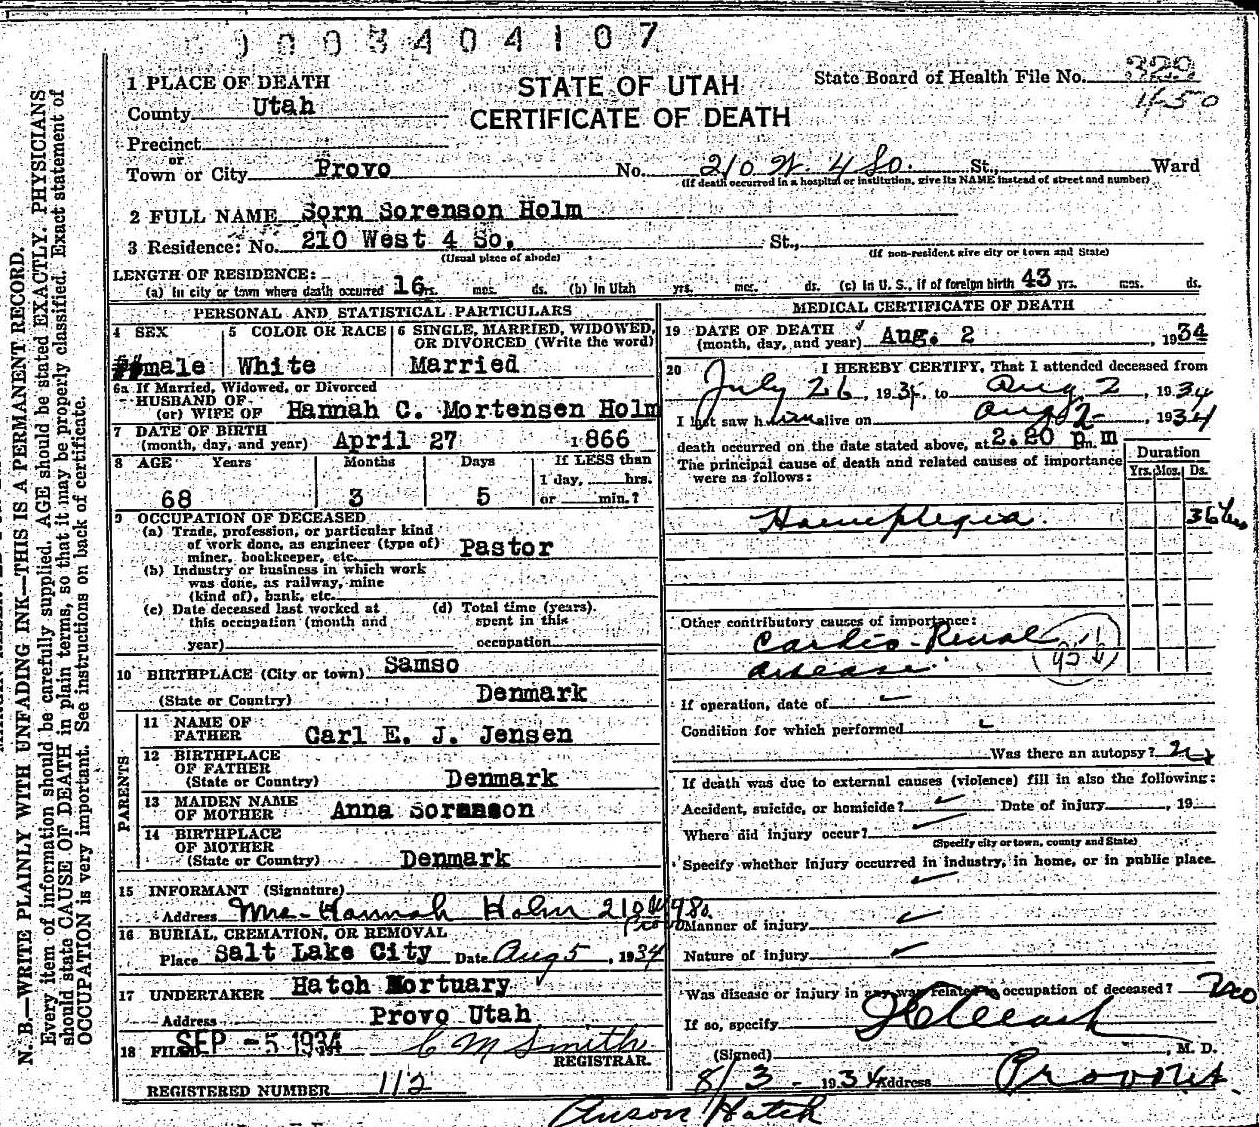 0003404107
1 PLACE OF DEATH
STATE OF UTAH
State Board of Health File No. 329
County Utah
CERTIFICATE OF DEATH
450
Precinct
or
Town or City Provo No. 210 W. 4 So. St., Ward
(If death occurred in a hospital or institution, give its NAME instead of street and number)
2 FULL NAME Sorn Sorenson Holm
3 Residence: No. 210 West 4 So. St.,
(Usual place of abode) (If non-resident give city or town and State)
LENGTH OF RESIDENCE:
(a) In city or town where death occurred 16 yrs. mos. ds. (b) In Utah yrs. mos. ds. (c) In U. S., if of foreign birth 43 yrs. mos. ds.
PERSONAL AND STATISTICAL PARTICULARS
4 SEX
male
5 COLOR OR RACE
White
6 SINGLE, MARRIED, WIDOWED,
OR DIVORCED (Write the word)
Married
6a If Married, Widowed, or Divorced
HUSBAND OF
(or) WIFE OF Hannah C. Mortensen Holm
7 DATE OF BIRTH
(month, day, and year) April 27 1866
8 AGE Years Months Days If LESS than
1 day, hrs.
68 3 5 or min.?
9 OCCUPATION OF DECEASED
(a) Trade, profession, or particular kind
of work done, as engineer (type of) Pastor
miner, bookkeeper, etc.
(b) Industry or business in which work
was done, as railway, mine
(kind of), bank, etc.
(c) Date deceased last worked at
this occupation (month and
year)
(d) Total time (years).
spent in this
occupation
10 BIRTHPLACE (City or town) Samso
(State or Country) Denmark
PARENTS
11 NAME OF
FATHER Carl E. J. Jensen
12 BIRTHPLACE
OF FATHER
(State or Country) Denmark
13 MAIDEN NAME
OF MOTHER Anna Sorenson
14 BIRTHPLACE
OF MOTHER
(State or Country) Denmark
15 INFORMANT (Signature)
Address Mrs. Hannah Holm 210 W 4 So.
Provo
16 BURIAL, CREMATION, OR REMOVAL
Place Salt Lake City Date Aug 5, 1934
17 UNDERTAKER Hatch Mortuary
Address Provo Utah
18 FILED SEP -5 1934 C M Smith
REGISTRAR.
REGISTERED NUMBER 112
MEDICAL CERTIFICATE OF DEATH
19 DATE OF DEATH
(month, day, and year) Aug. 2, 1934
20 I HEREBY CERTIFY, That I attended deceased from
July 26, 1934, to Aug 2, 1934
I last saw him alive on Aug 2, 1934
death occurred on the date stated above, at 2:20 p.m
The principal cause of death and related causes of importance
were as follows:
Duration
Yrs. Mos. Ds.
Haemeplegia 36 hrs
Other contributory causes of importance:
Cardio-Renal
disease
If operation, date of
Condition for which performed
Was there an autopsy? no
If death was due to external causes (violence) fill in also the following:
Accident, suicide, or homicide? Date of injury, 19
Where did injury occur?
(Specify city or town, county and State)
Specify whether injury occurred in industry, in home, or in public place.
Manner of injury
Nature of injury
Was disease or injury in any way related to occupation of deceased? no
If so, specify
(Signed), M. D.
8/3 - 1934 Address Provo Ut.
Anson Hatch
N. B.—WRITE PLAINLY WITH UNFADING INK—THIS IS A PERMANENT RECORD.
Every item of information should be carefully supplied. AGE should be stated EXACTLY. PHYSICIANS
should state CAUSE OF DEATH in plain terms, so that it may be properly classified. Exact statement of
OCCUPATION is very important. See instructions on back of certificate.